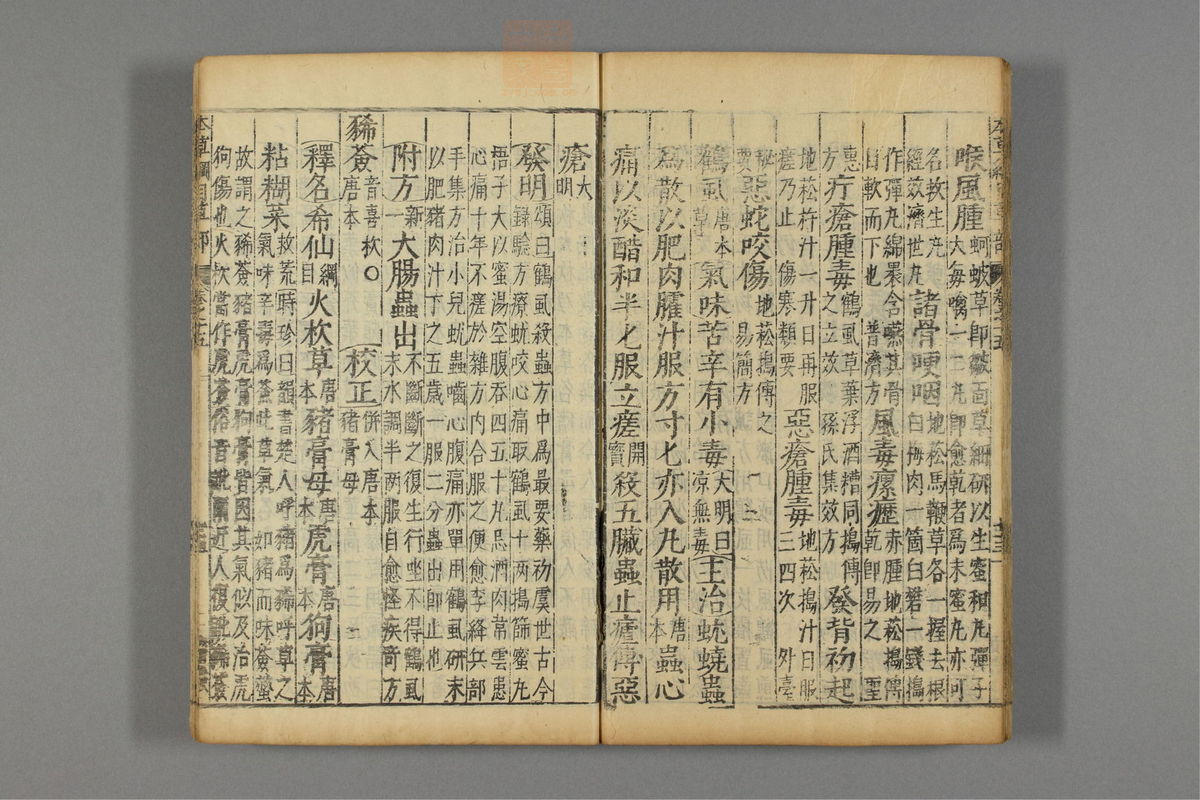 喉風腫 蚵蚾草即皺面草細研以生蜜和丸彈子
大每噙一二丸即愈乾者為末蜜丸亦可
名救生丸
經效濟世方 諸骨哽咽 地菘馬鞭草各一握去根
白梅肉一箇白礬一錢搗
作彈丸綿裹含嚥其骨
自軟而下也 普濟方 風毒瘰癧 赤腫地菘搗傅
乾即易之 聖
惠方 疔瘡腫毒 鶴虱草葉浮酒糟同搗傅
之立效 孫氏集效方 發背初起
地菘杵汁一升日再服
瘥乃止 傷寒類要 惡瘡腫毒 地菘搗汁日服
三四次 外臺
祕要 惡蛇咬傷 地菘搗傅之
易簡方
鶴虱 唐本草 氣味苦辛有小毒 大明曰涼無毒 主治蚘蟯蟲
為散以肥肉臛汁服方寸匕亦入丸散用 唐本 蟲心
痛以淡醋和半匕服立瘥 開寶 殺五臟蟲止瘧傅惡
瘡 大明
發明 頌曰鶴虱殺蟲方中為最要藥初虞世古今
錄驗方療蚘咬心痛取鶴虱十兩搗篩蜜丸
梧子大以蜜湯空腹吞四五十丸忌酒肉常雲患
心痛十年不瘥於雜方內合服之便愈李絳兵部
手集方治小兒蚘蟲嚙心腹痛亦單用鶴虱研末
以肥豬肉汁下之五歲一服二分蟲出即止也
附方 新一 大腸蟲出 不斷斷之復生行坐不得鶴虱
末水調半兩服自愈怪疾奇方
豨薟 音喜杴〇唐本 校正 併入唐本豬膏母
釋名希仙 綱目 火杴草 唐本 豬膏母 唐本 虎膏 唐本 狗膏 唐本
粘糊菜 救荒 時珍曰韻書楚人呼豬為豨呼草之
氣味辛毒為薟此草氣如豬而味薟螫
故謂之豨薟豬膏虎膏狗膏皆因其氣似及治虎
狗傷也火杴當作虎薟俗音訛爾近人復訛豨薟
本草綱目草部 卷之十五